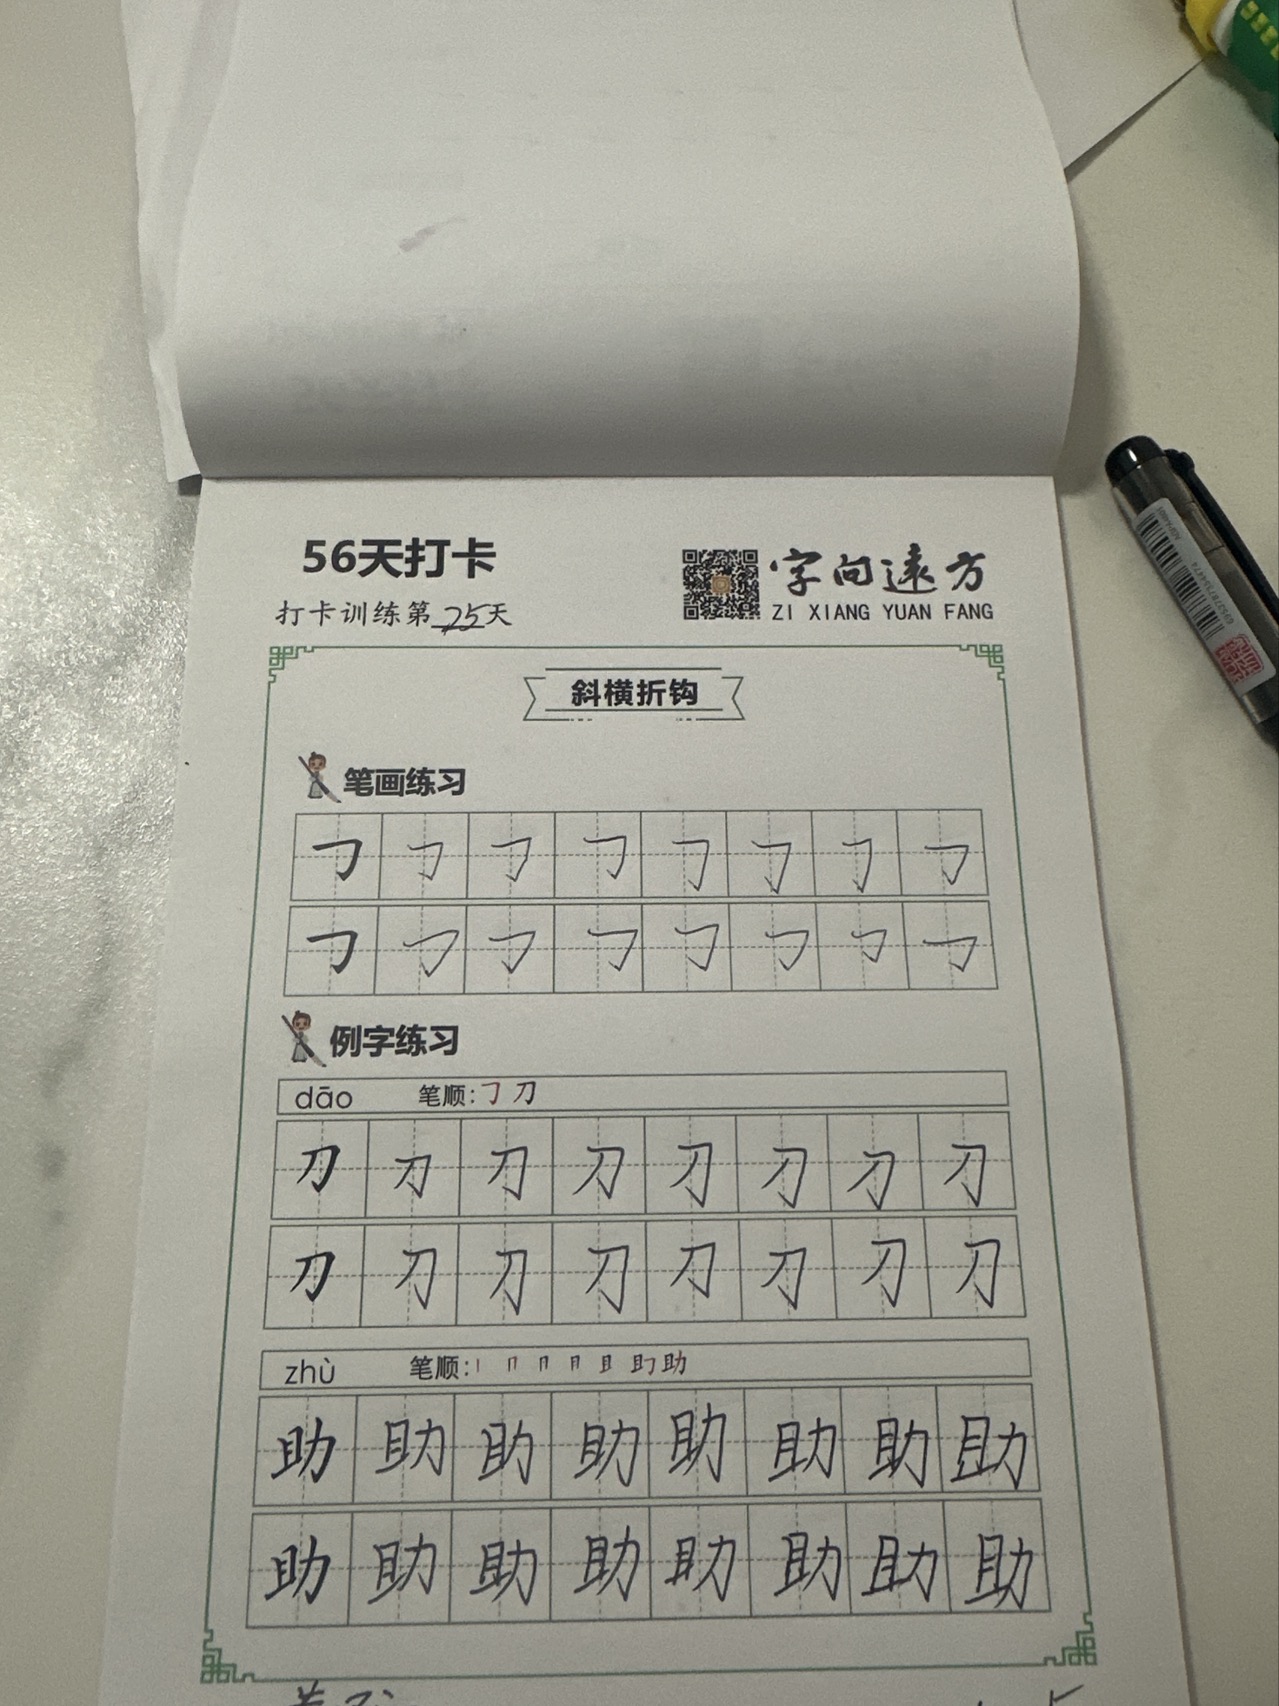 56天打卡
打卡训练第25天
字向遠方
ZI XIANG YUAN FANG
斜横折钩
笔画练习
㇆ ㇆ ㇆ ㇆ ㇆ ㇆ ㇆ ㇆
㇆ ㇆ ㇆ ㇆ ㇆ ㇆ ㇆ ㇆
例字练习
dāo 笔顺:㇆ 刀
刀 刀 刀 刀 刀 刀 刀 刀
刀 刀 刀 刀 刀 刀 刀 刀
zhù 笔顺:
助 助 助 助 助 助 助 助
助 助 助 助 助 助 助 助